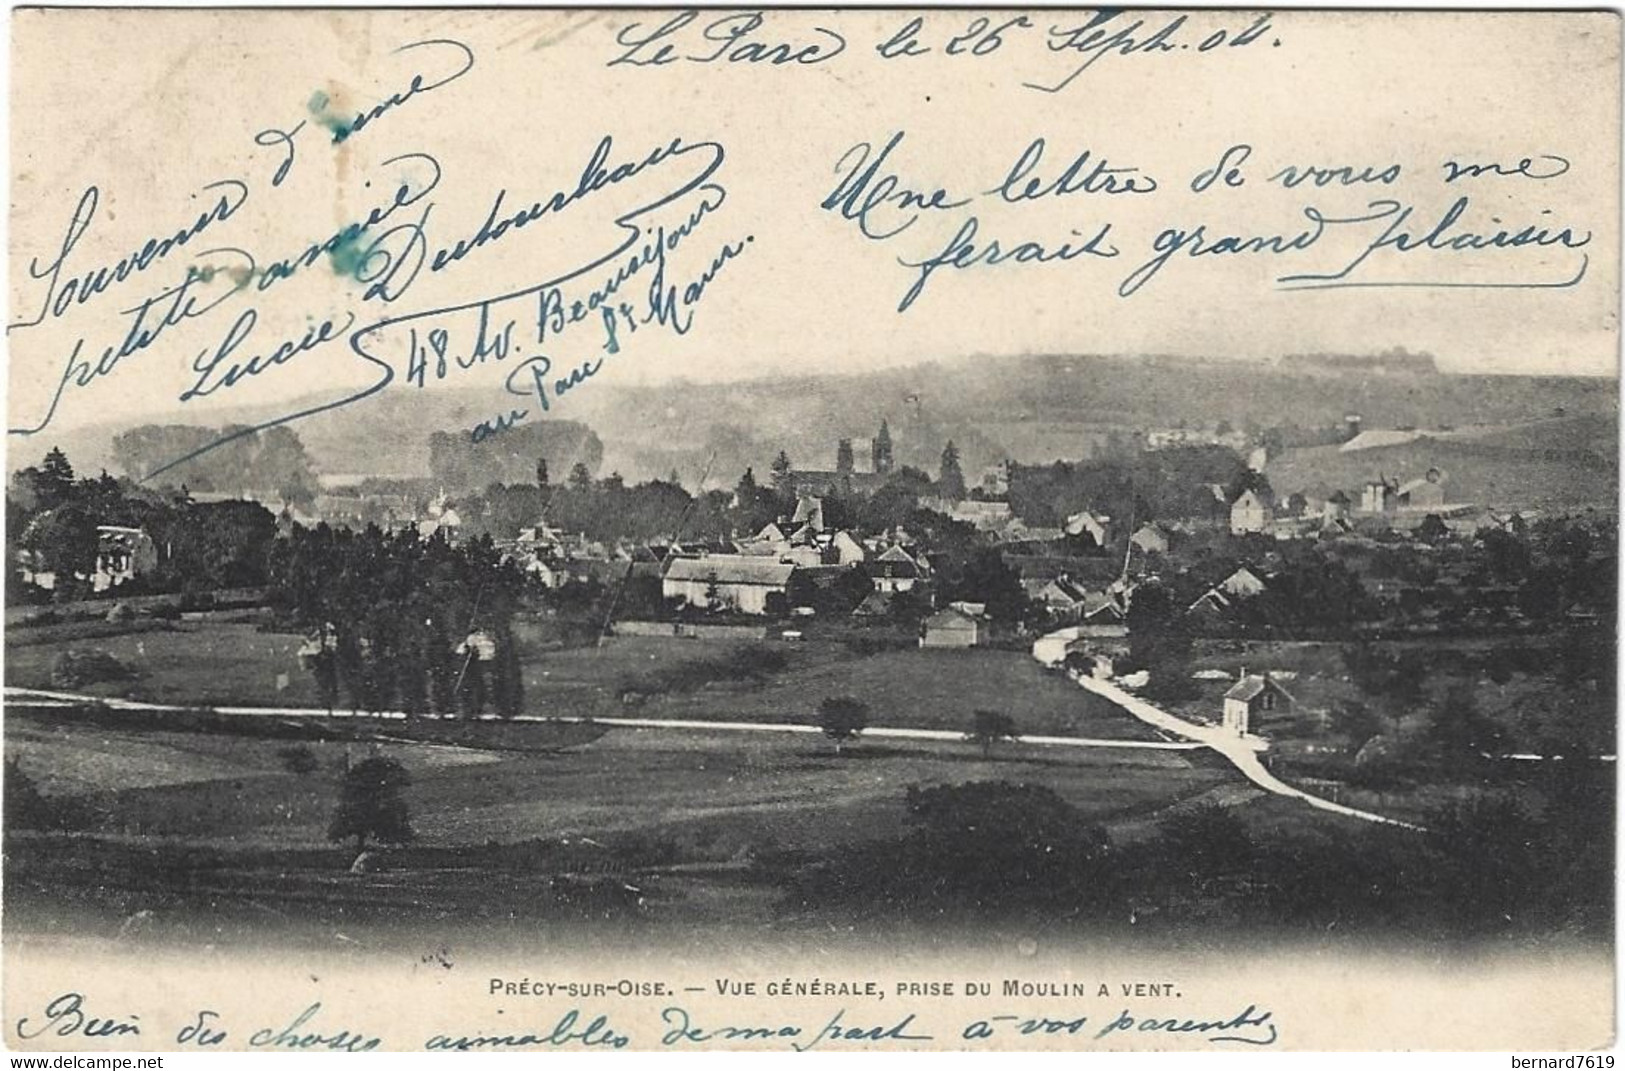 Le Parc le 26 Sept. 04.
Souvenir d'une
petite amie
Lucie
48 Av. Beauséjour
au Parc St Maur.
Une lettre de vous me
ferait grand plaisir
PRÉCY-SUR-OISE. — VUE GÉNÉRALE, PRISE DU MOULIN A VENT.
Bien des choses aimables de ma part à vos parents
bernard7619